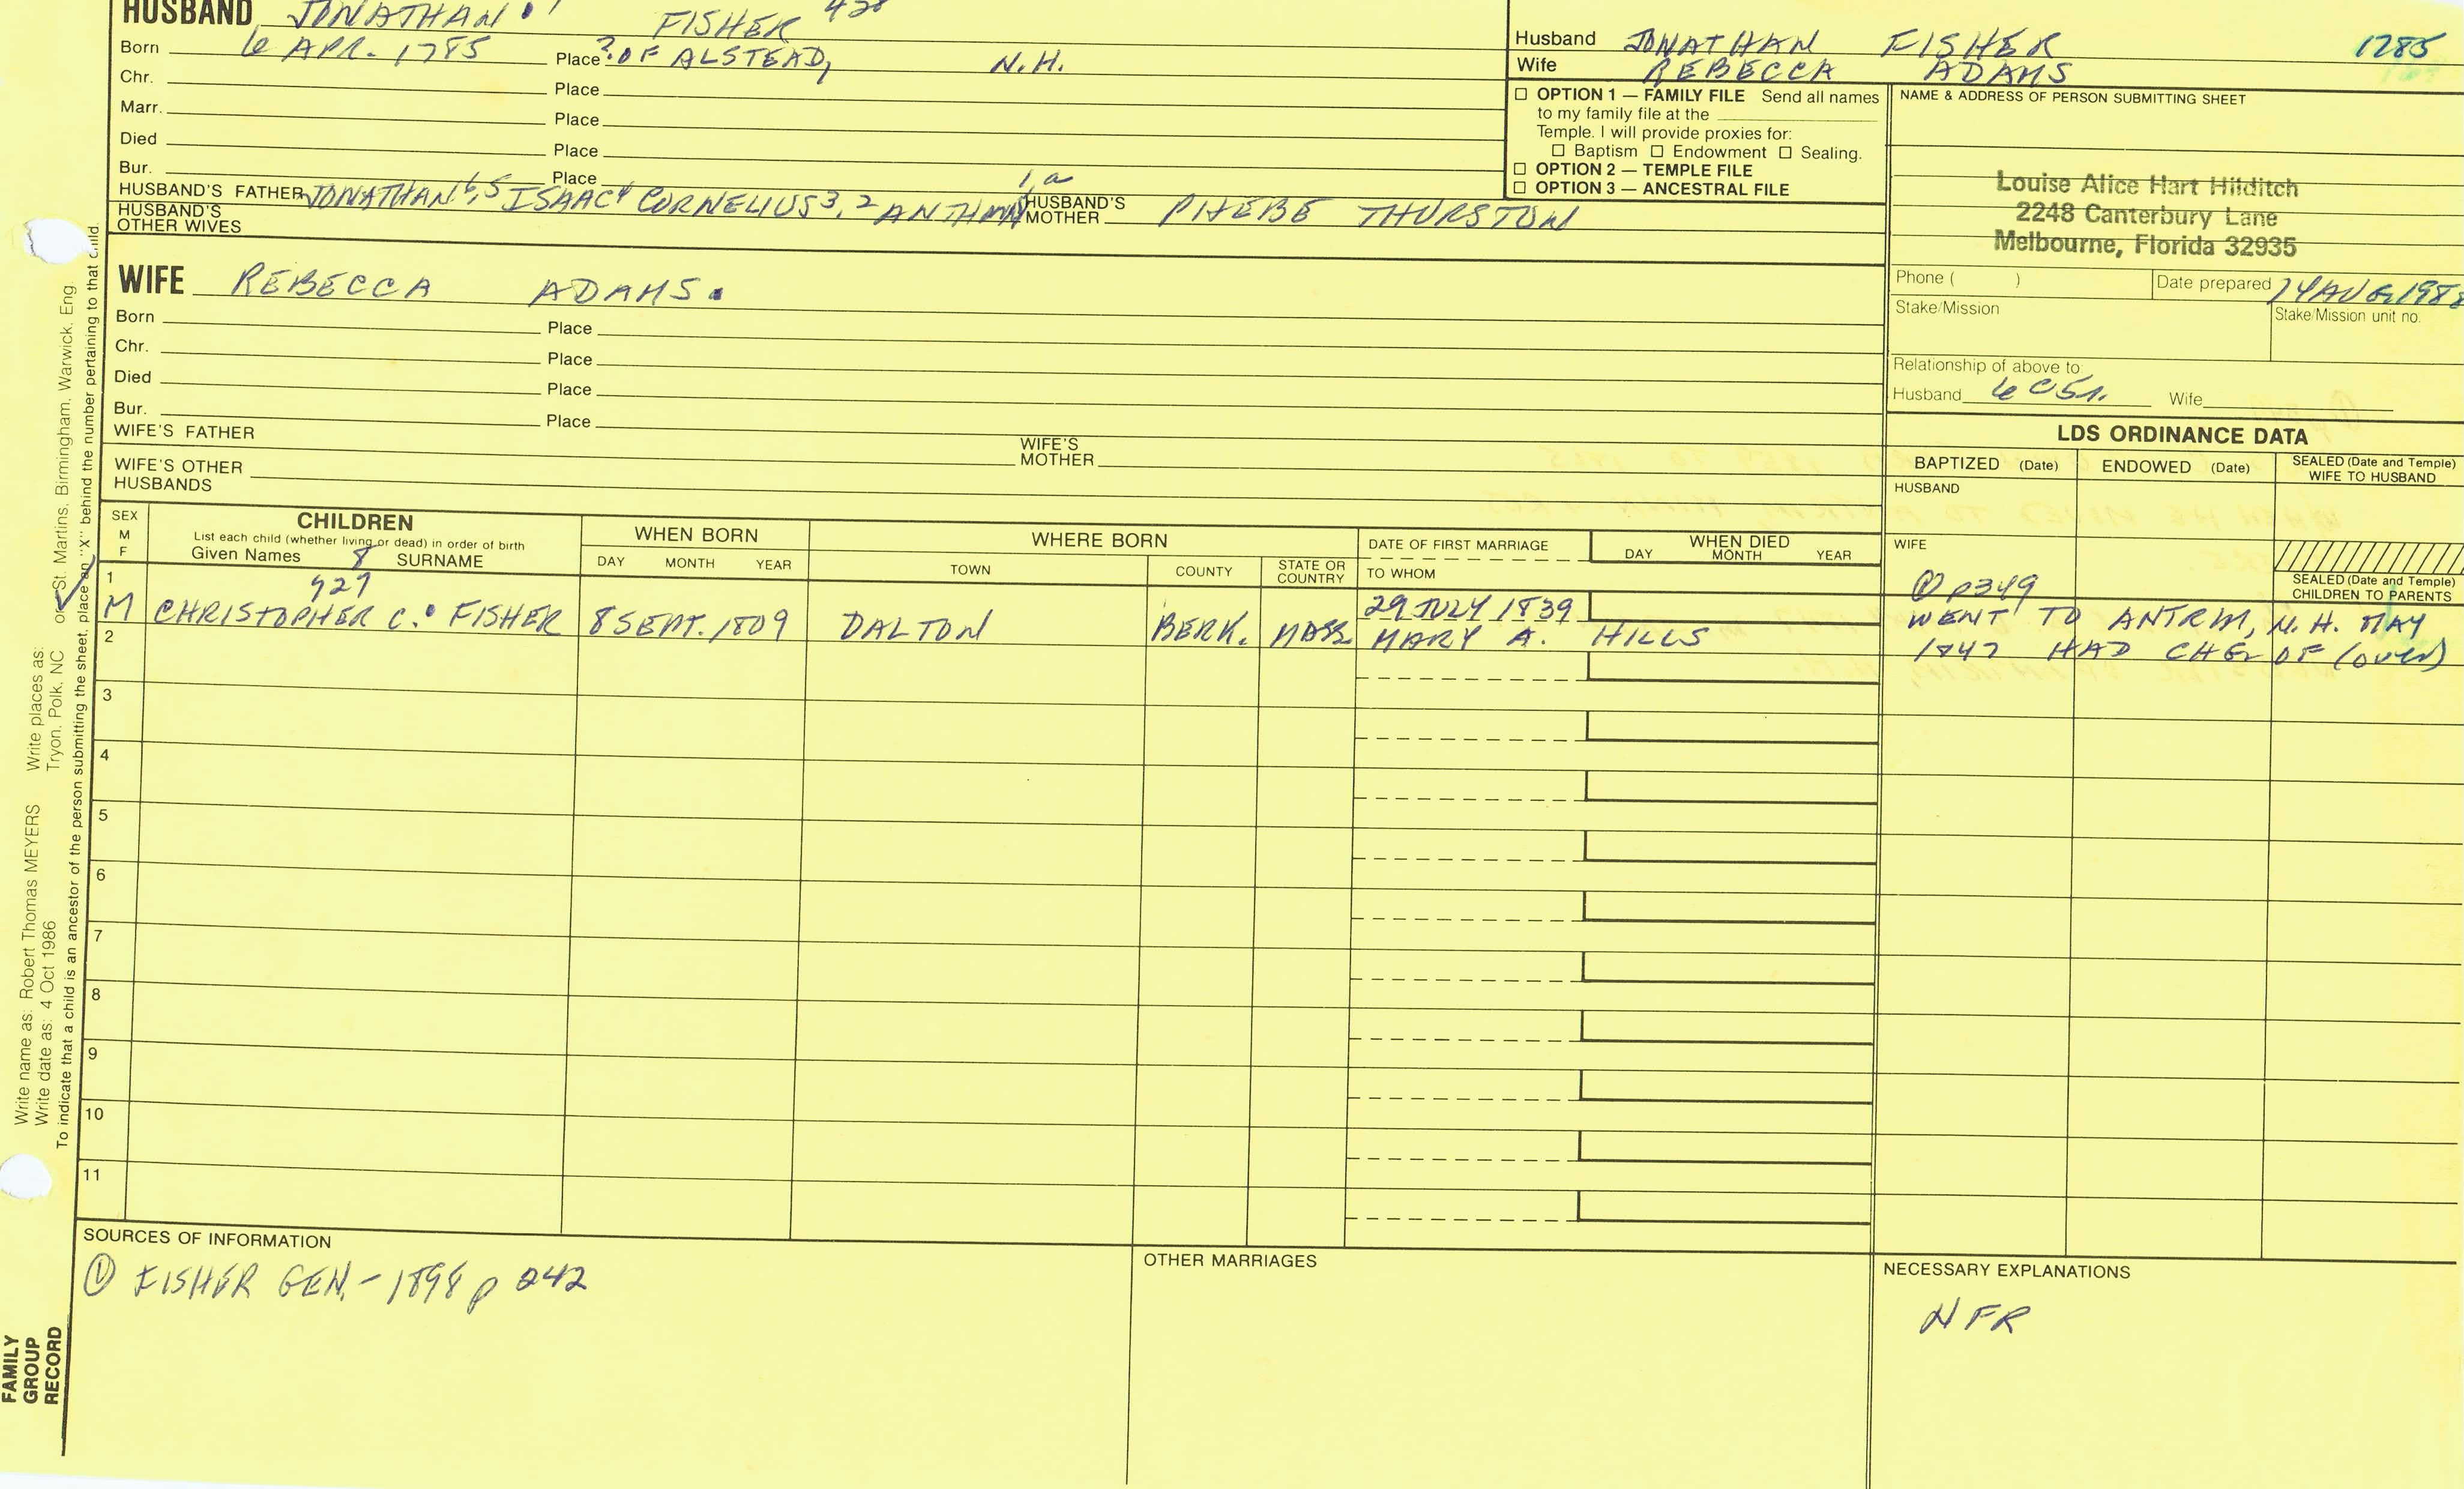 HUSBAND JONATHAN 7 FISHER 428
Born 6 APR. 1785 Place ? OF ALSTEAD, N.H.
Chr. Place
Marr. Place
Died Place
Bur. Place
HUSBAND'S FATHER JONATHAN 6,5 ISAAC 4 CORNELIUS 3,2 ANTHONY 1,a HUSBAND'S MOTHER PHEBE THURSTON
HUSBAND'S OTHER WIVES
WIFE REBECCA ADAMS.
Born Place
Chr. Place
Died Place
Bur. Place
WIFE'S FATHER WIFE'S MOTHER
WIFE'S OTHER HUSBANDS
Husband JONATHAN FISHER 1785
Wife REBECCA ADAMS
☐ OPTION 1 — FAMILY FILE Send all names
to my family file at the
Temple. I will provide proxies for:
☐ Baptism ☐ Endowment ☐ Sealing.
☐ OPTION 2 — TEMPLE FILE
☐ OPTION 3 — ANCESTRAL FILE
NAME & ADDRESS OF PERSON SUBMITTING SHEET
Louise Alice Hart Hilditch
2248 Canterbury Lane
Melbourne, Florida 32935
Phone ( ) Date prepared 24 AUG 1988
Stake/Mission Stake/Mission unit no.
Relationship of above to:
Husband 6 C 5 Wife
LDS ORDINANCE DATA
BAPTIZED (Date) ENDOWED (Date) SEALED (Date and Temple) WIFE TO HUSBAND
HUSBAND
WIFE
SEALED (Date and Temple)
CHILDREN TO PARENTS
SEX M F
CHILDREN
List each child (whether living or dead) in order of birth
Given Names SURNAME
WHEN BORN
DAY MONTH YEAR
WHERE BORN
TOWN COUNTY STATE OR COUNTRY
DATE OF FIRST MARRIAGE
TO WHOM
WHEN DIED
DAY MONTH YEAR
8
927
1 M CHRISTOPHER C. FISHER 8 SEPT. 1809 DALTON BERK. MASS. 29 JULY 1839
MARY A. HILLS
① p349
WENT TO ANTRIM, N.H. MAY
1847 HAD CHG OF (over)
2
3
4
5
6
7
8
9
10
11
SOURCES OF INFORMATION
① FISHER GEN. - 1898 p 242
OTHER MARRIAGES
NECESSARY EXPLANATIONS
NFR
FAMILY
GROUP
RECORD
Write name as: Robert Thomas MEYERS Write places as: Tryon, Polk, NC or St. Martins, Birmingham, Warwick, Eng.
Write date as: 4 Oct 1986
To indicate that a child is an ancestor of the person submitting the sheet, place an "X" behind the number pertaining to that child.